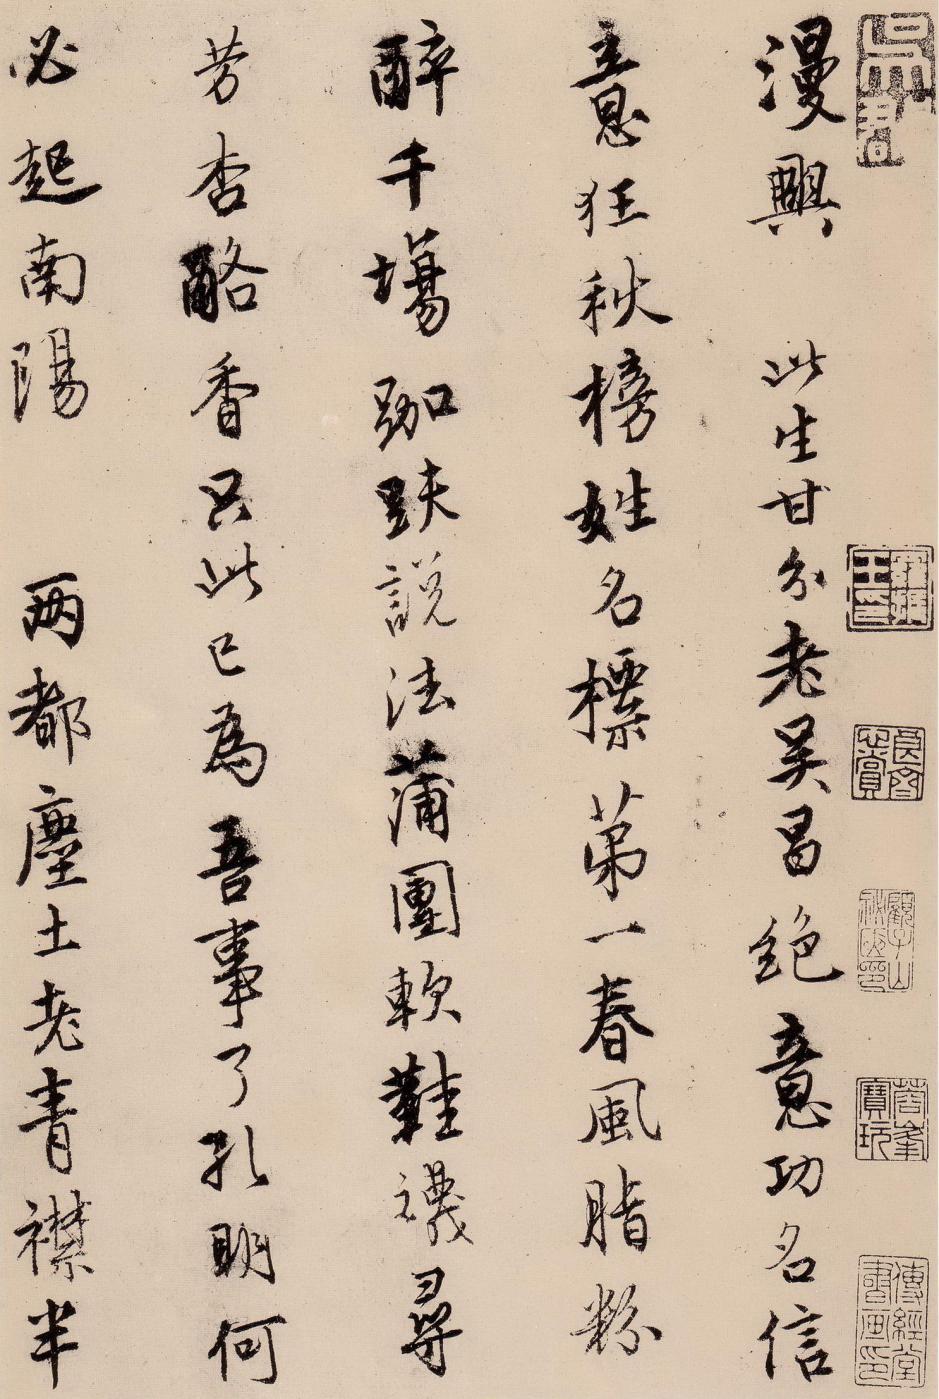 漫興　此生甘分老吳昌絕意功名信
意狂秋榜姓名標第一春風脂粉
醉千場跏趺說法蒲團軟鞋襪尋
芳杏酪香只此已為吾事了孔明何
必起南陽　兩都塵土老青襟半